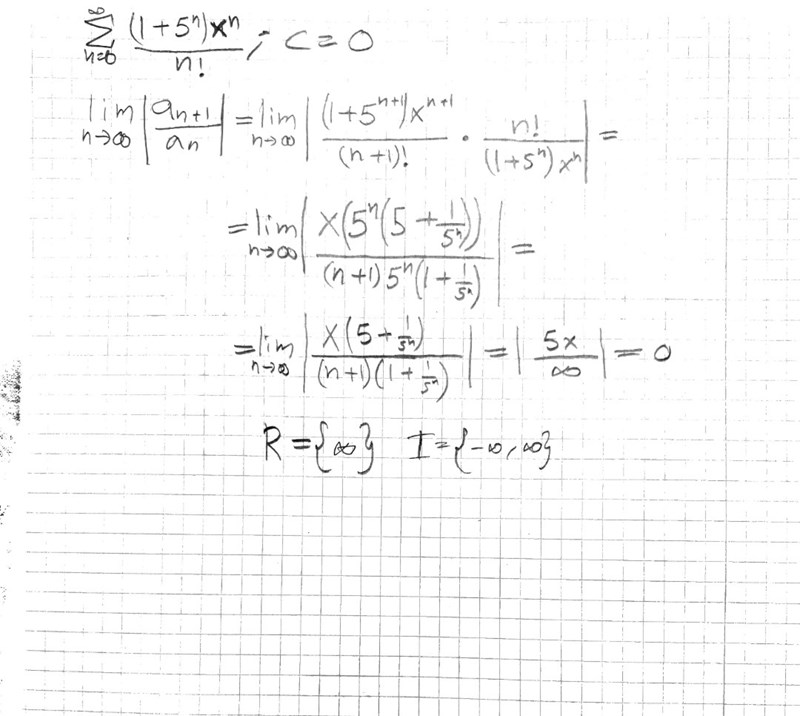 ∑_{n=0}^{∞} (1+5^n)x^n / n! ; c=0
lim_{n→∞} |a_{n+1} / a_n| = lim_{n→∞} |(1+5^{n+1})x^{n+1} / (n+1)! · n! / (1+5^n)x^n| =
= lim_{n→∞} |x(5^n(5+1/5^n)) / (n+1)5^n(1+1/5^n)| =
= lim_{n→∞} |x(5+1/5^n) / (n+1)(1+1/5^n)| = |5x / ∞| = 0
R={∞} I={-∞,∞}